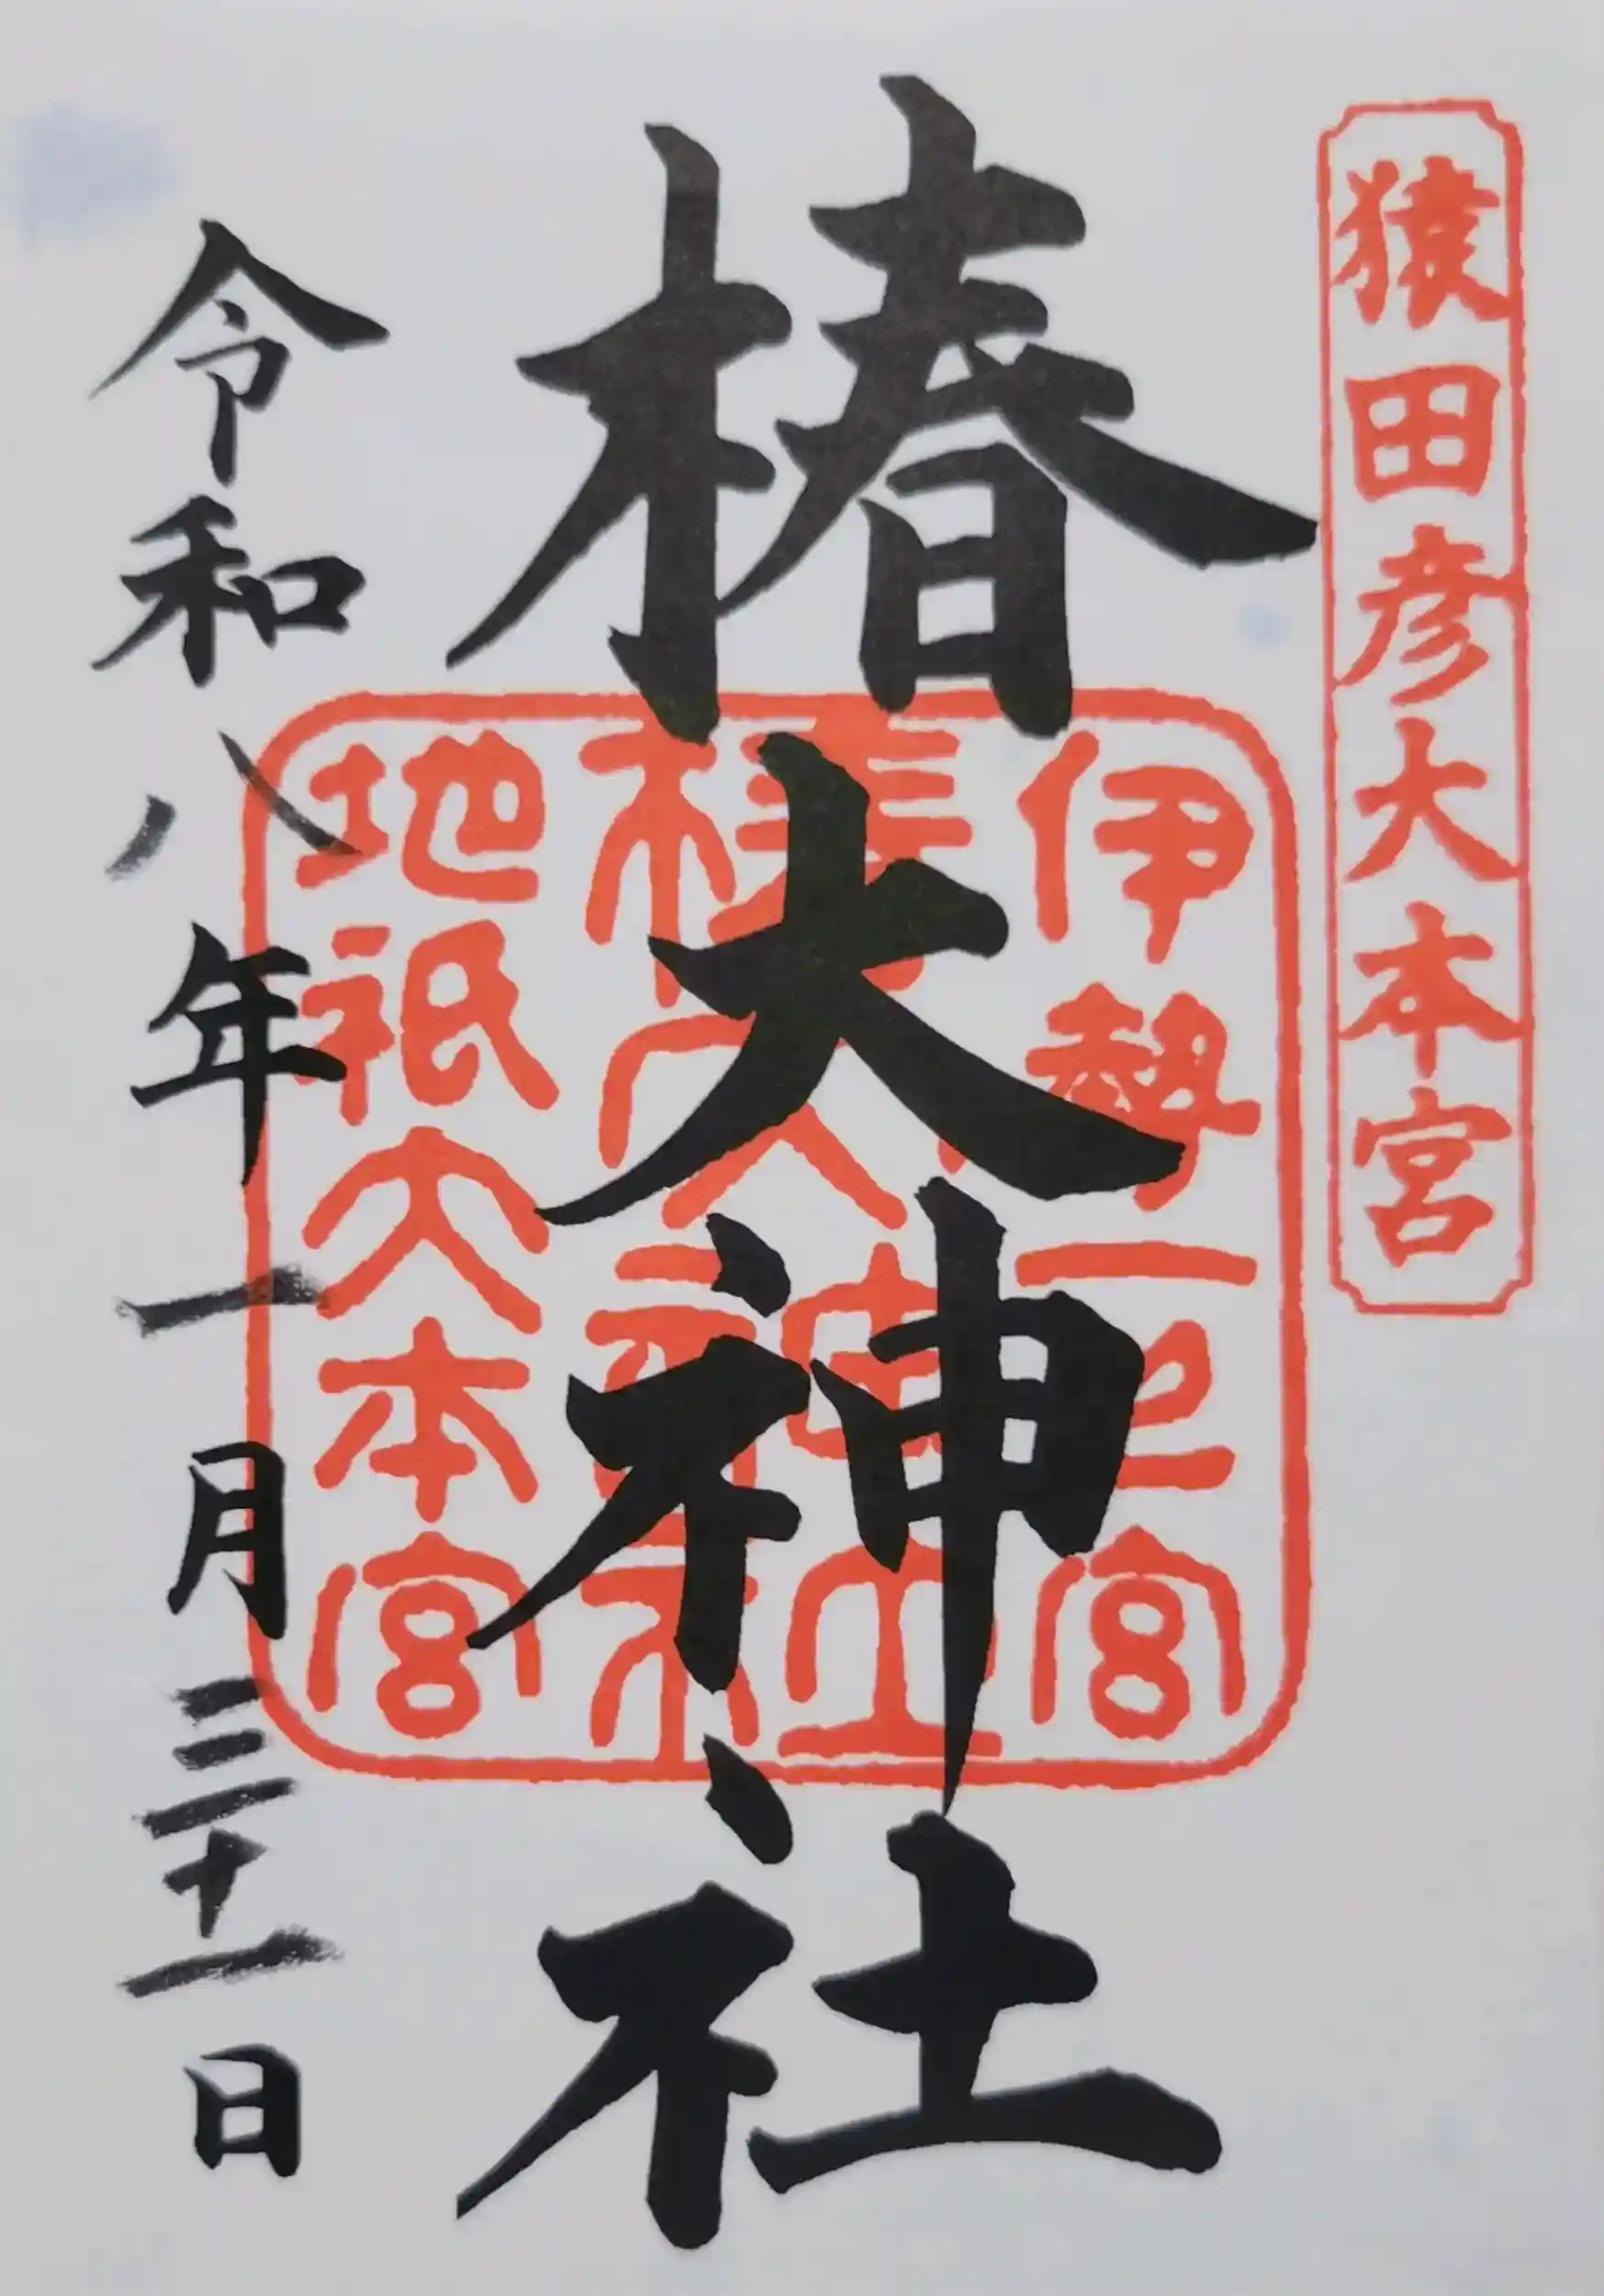 猿田彦大本宮
椿大神社
伊勢一之宮
椿大神社
地祇大本宮
令和八年一月三十一日